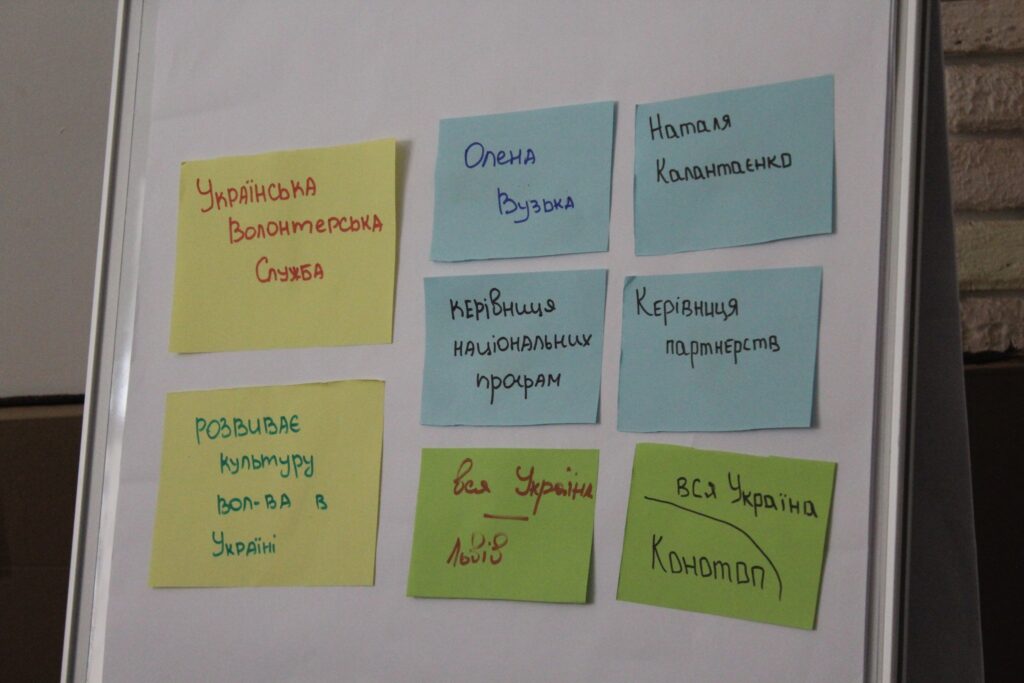 Українська
Волонтерська
Служба
розвиває
культуру
вол-ва в
Україні
Олена
Вузька
керівниця
національних
програм
вся Україна
Львів
Наталя
Калантаєнко
Керівниця
партнерств
вся Україна
Конотоп